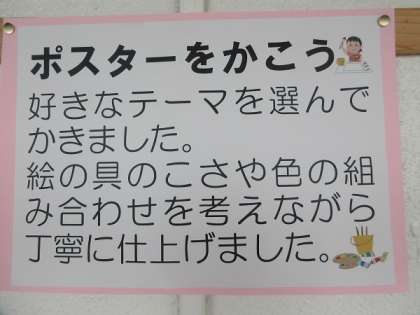 ポスターをかこう
好きなテーマを選んで
かきました。
絵の具のこさや色の組
み合わせを考えながら
丁寧に仕上げました。